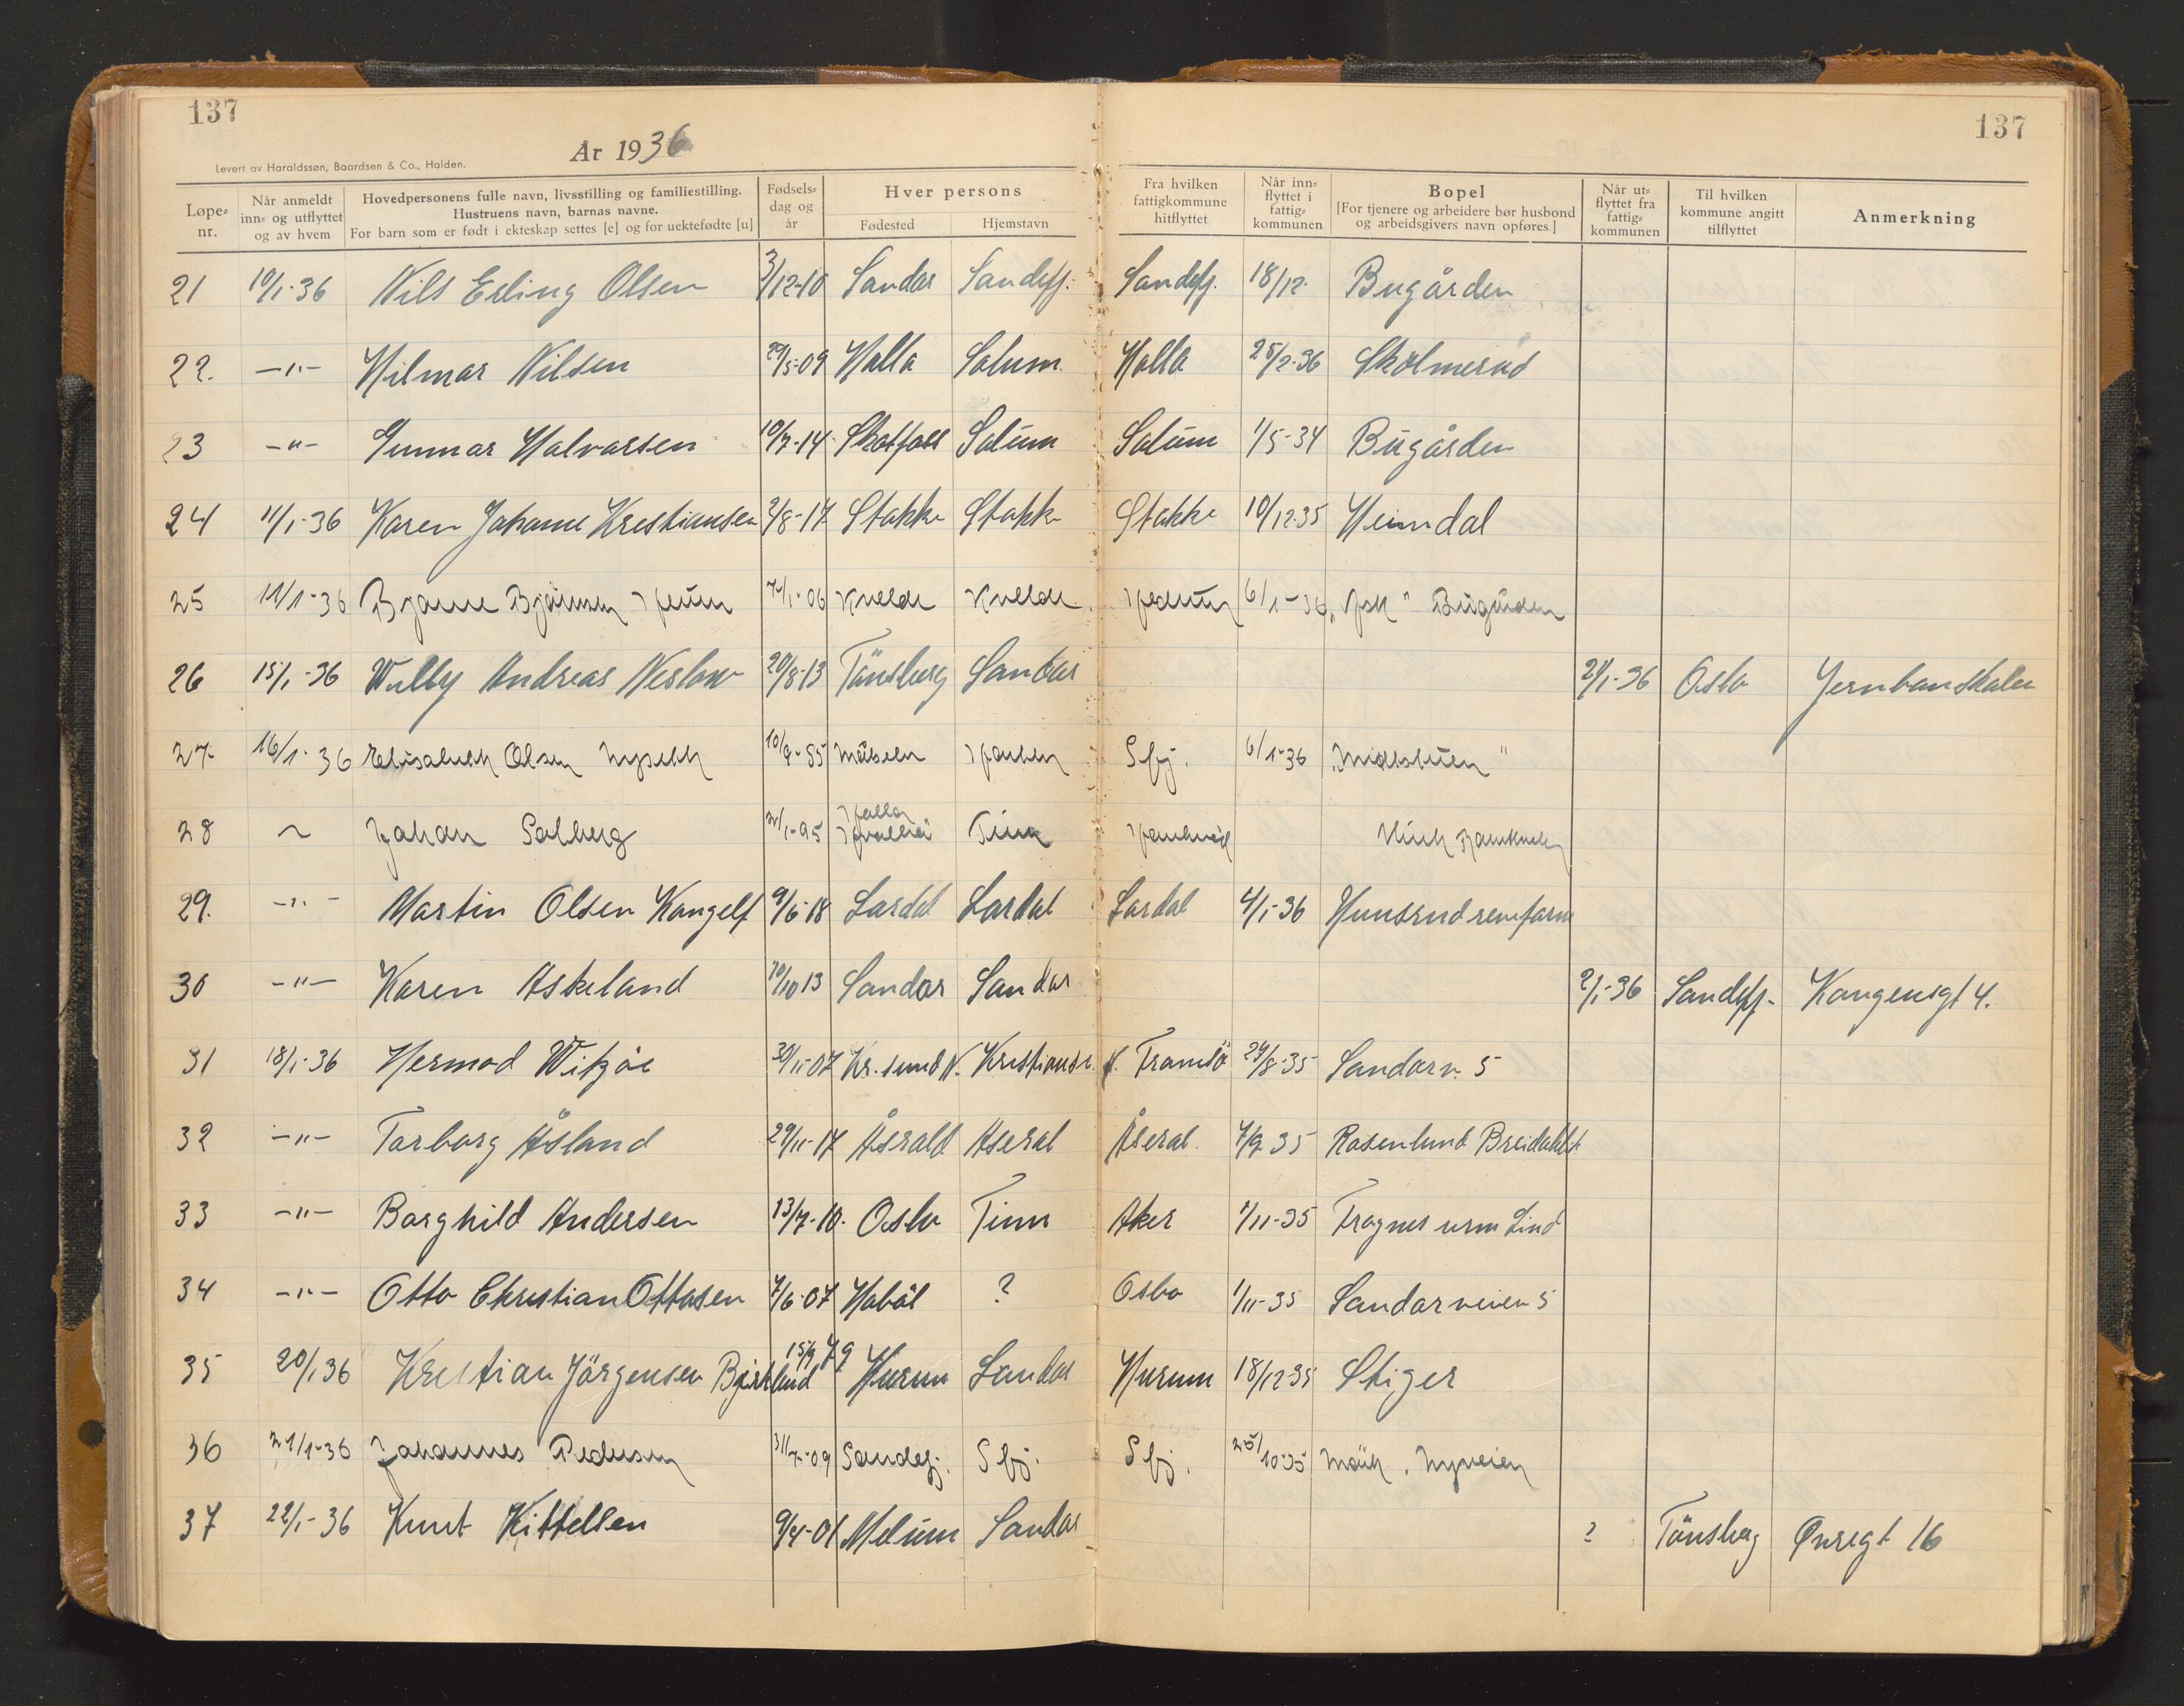 137
137
År 1936
Levert av Haraldssøn, Baardsen & Co., Halden.
Løpe-nr. Når anmeldt inn- og utflyttet og av hvem Hovedpersonens fulle navn, livsstilling og familiestilling. Hustruens navn, barnas navne. For barn som er født i ekteskap settes [e] og for uektefødte [u] Fødsels-dag og år Hver persons Fødested Hjemstavn Fra hvilken fattigkommune hitflyttet Når inn-flyttet i fattig-kommunen Bopel [For tjenere og arbeidere bør husbond og arbeidsgivers navn opføres.] Når ut-flyttet fra fattig-kommunen Til hvilken kommune angitt tilflyttet Anmerkning
21 10/1-36 Nils Erling Olsen 3/12-10 Sandar Sandefj. Sandefj. 18/12. Bugården
22. -"- Hilmar Nilsen 29/5-09 Holla Solum. Holla 25/2-36 Skolmerød
23 -"- Gunnar Halvorsen 10/7-14 Skotfoss Solum Solum 1/5-34 Bugården
24 11/1-36 Karen Johanne Kristiansen 3/8-17 Stokke Stokke Stokke 10/12-35 Heimdal
25 11/1-36 Bjarne 7/1-06 Kvelde Kvelde Hedrum 6/1-36 Bugården
26 15/1-36 Willy Andreas Neslow 20/8-13 Tönsberg Sandar 21/1-36 Oslo Jernbanskolen
27. 16/1-36 Elisabeth Olsen 10/9-85 Sfj. 6/1-36
28 Johan Solberg 2/1-95 Tinn
29. -"- Martin Olsen Kongelf 9/6-18 Lardal Lardal Lardal 4/1-36 Hunsrud revefarm
30 -"- Karen Askeland 30/10 13 Sandar Sandar 2/1-36 Sandefj. Kongensgt 4.
31 18/1-36 Hermod Witzöe 30/11-07 Kr.sund N. Kristiansr. N. Tromsö 29/8-35 Sandarv. 5
32 -"- Torborg Åsland 29/11-17 Åserald Åseral Åseral. 7/9 35 Rosenlund Breidablikk
33 -"- Borghild Andersen 13/7-10. Oslo Tinn Aker 1/11-35 Fragnes urm Lind
34 -"- Otto Christian Ottosen 7/6-07 Hobøl ? Oslo 1/11-35 Sandarveien 5
35 20/1 36 Kristian Jörgensen Bjerklund 15/9 79 Hurum Sandar Hurum 18/12-35 Stiger
36 21/1-36 Johannes Pedersen 31/7-09 Sandefj. Sfj. Sfj. 25/10-35 Nyveien
37 22/1-36 Knut Kittelsen 9/4-01 Melum Sandar ? Tönsberg Øvregt 16